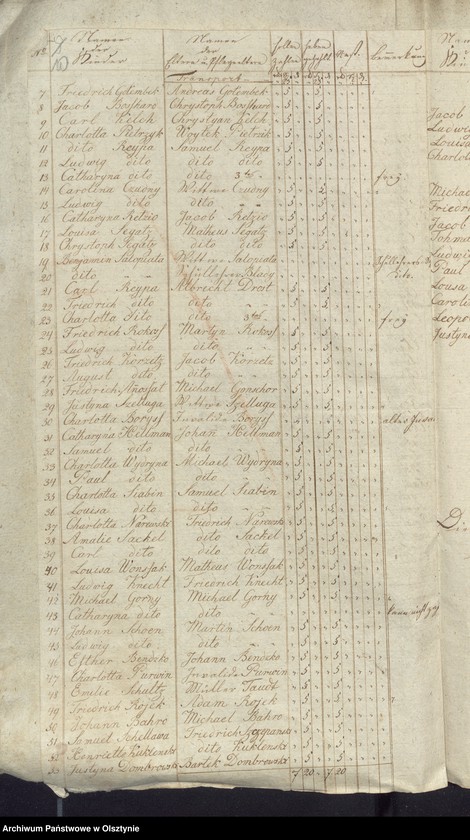 No. Namen der Kinder Namen der Eltern u. Pflegeeltern Sollen zahlen haben gezahlt Rest. Bemerkung
Transport
7 Friedrich Golombek Andreas Golombek 5 5
8 Jacob Chrystoph 5 5
9 Carl Kilch Chrystyan Kilch 5 5
10 Charlotta Pietrzyk Woytek Pietrzik 5 5
11 dito Keypa Samuel Keypa 5 5
12 Ludwig dito dito dito 5 5
13 Catharyna dito dito 3te frey
14 Carolina Czudny Wittwe Czudny 5 5
15 Ludwig dito dito 5 5
16 Catharyna Retzio Jacob Retzio 5 5
17 Louisa Segatz Matheus Segatz 5 5
18 Chrystoph Segatz dito 5 5
19 Benjamin Salopiata Wittwe Salopiata
20 dito
21 Carl Keypa Albrecht Drost 5 5
22 Friedrich dito dito 5 5
23 Charlotta dito dito 3te frey
24 Friedrich Rokosf Martyn Rokosf 5 5
25 Ludwig dito dito 5 5
26 Friedrich Korzetz Jacob Korzetz 5 5
27 August dito dito 5 5
28 Friedrich Michael 5 5
29 Justyna Szelluga Wittwe Szelluga 5 5
30 Charlotta Borysf Invalide Borysf
31 Catharyna Hellman Johan Hellman 5 5
32 Samuel dito dito 5 5
33 Charlotta Wydryna Michael Wydryna 5 5
34 Paul dito dito 5 5
35 Charlotta Siabin Samuel Siabin 5 5
36 Louisa dito dito 5 5
37 Charlotta Narewski Friedrich Narewski 5 5
38 Amalie Sackel dito Sackel 5 5
39 Carl dito dito dito 5 5
40 Louisa Wonsfak Matheus Wonsfak 5 5
41 Ludwig Knecht Friedrich Knecht 5 5
42 Michael Gorny Michael Gorny 5 5
43 Catharyna dito dito
44 Johann Schoen Martin Schoen 5 5
45 Ludwig dito dito 5 5
46 Esther Bendzko Johann Bendzko 5 5
47 Charlotta Purwin Invalide Purwin 5 5
48 Emilie Schultz Müller Taudt 5 5
49 Friedrich Kojek Adam Kojek 5 5
50 Johann Bahro Michael Bahro 5 5
51 Samuel Schellawa Friedrich 5 5
52 Henriette Kuklenski dito Kuklenski 5 5
53 Justyna Dombrowski Bartek Dombrowski 5 5
7 20 7 20
Jacob
Ludwig
Louisa
Charlot
Michae
Friedri
Jacob
Johan
Ludwi
Paul
Lousa
Carol
Leopo
Justyn
Archiwum Państwowe w Olsztynie